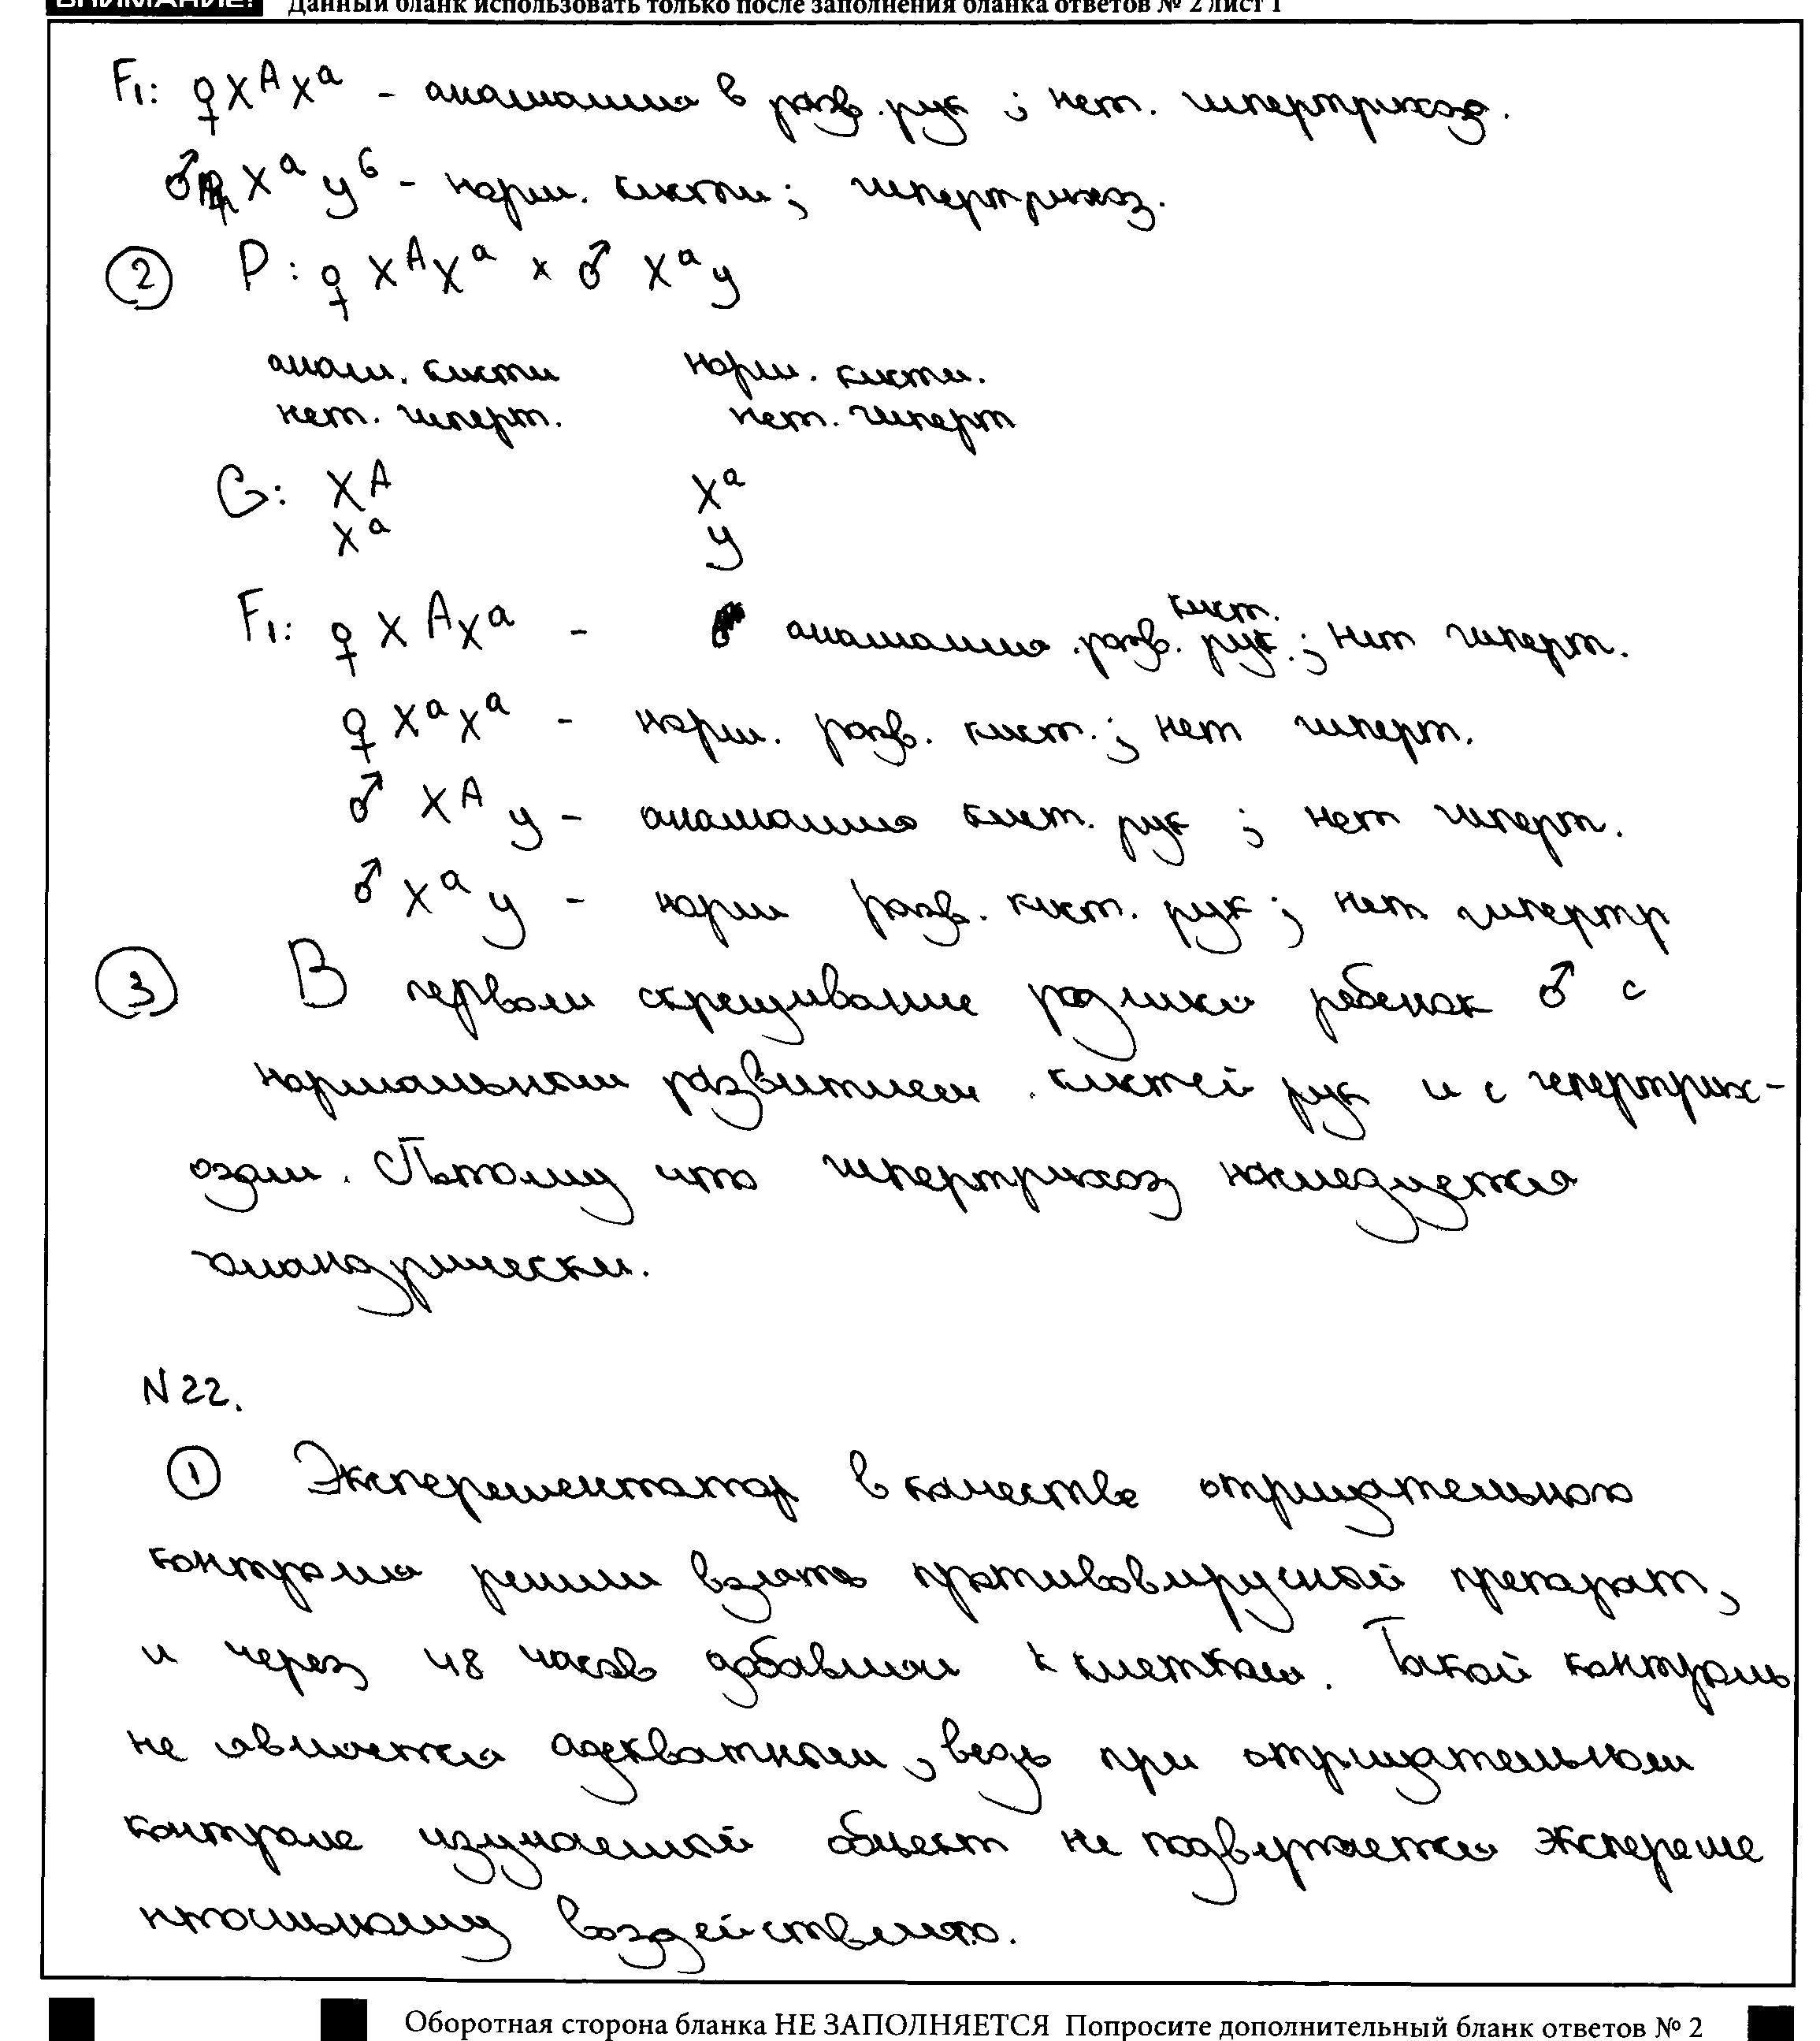 ВНИМАНИЕ! Данный бланк использовать только после заполнения бланка ответов № 2 лист 1
F₁: ♀ X^A X^a - аномалия в разв. рук ; нет. гипертрихоз.
♂ X^a y^б - норм. кисти; гипертрихоз.
② P: ♀ X^A X^a × ♂ X^a y
аном. кисти норм. кисти.
нет. гиперт. нет. гиперт
G: X^A X^a
X^a y
кист.
F₁: ♀ X^A X^a - аномалия .разв. рук.; нит гиперт.
♀ X^a X^a - норм. разв. кист.; нет гиперт.
♂ X^A y - аномалия кист. рук ; нет гиперт.
♂ X^a y - норм разв. кист. рук ; нет гипертр
③ В первом скрещивание родился ребенок ♂ с
нормальным развитием . кистей рук и с гепертрих-
озом. Потому что гипертрихоз наследуется
голандрически.
N 22.
① Эксперементатор в качестве отрицательного
контроля решил взлять противовирусный препарат,
и через 48 часов добавлял к клеткам. Такой контроль
не является адекватным, ведь при отрицательном
контроле изучаемый обьект не подвергается экспереме
нтальному воздействию.
Оборотная сторона бланка НЕ ЗАПОЛНЯЕТСЯ Попросите дополнительный бланк ответов № 2